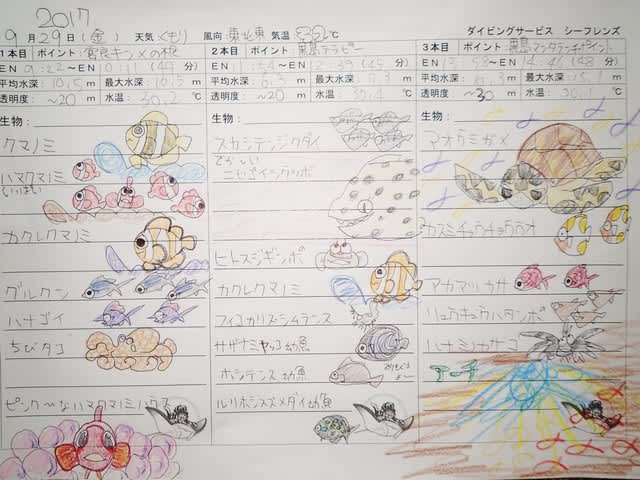 2017
9月29日(金) 天気 くもり 風向: 東北東 気温 32℃
ダイビングサービス シーフレンズ
1本目 ポイント:宮良キンメの根
EN 9:22~EN 10:11(49分)
平均水深: 10.5m 最大水深: m
透明度: ~20m 水温: 30.2℃
生物:
クマノミ
ハマクマノミ
いっぱい
カクレクマノミ
グルクン
ハナゴイ
ちびダコ
ピンク~なハマクマノミハウス
2本目 ポイント:黒島
EN 11:54~EN 12:39(45分)
平均水深: m 最大水深: m
透明度: ~20m 水温: 30.4℃
生物:
スカシテンジクダイ
でっかしい
ニセゴイシウツボ
ヒトスジギンポ
カクレクマノミ
フィコカリス・シムランス
サザナミヤッコ幼魚
ホシテンス幼魚
ルリホシスズメダイ幼魚
3本目 ポイント:黒島マンタランチポイント
EN 13:58~EN 14:46(48分)
平均水深: m 最大水深: m
透明度: ~30m 水温: 30.1℃
生物:
アオウミガメ
カスミチョウチョウウオ
アカマツカサ
リュウキュウハタンポ
ハナミノカサゴ
アーチ